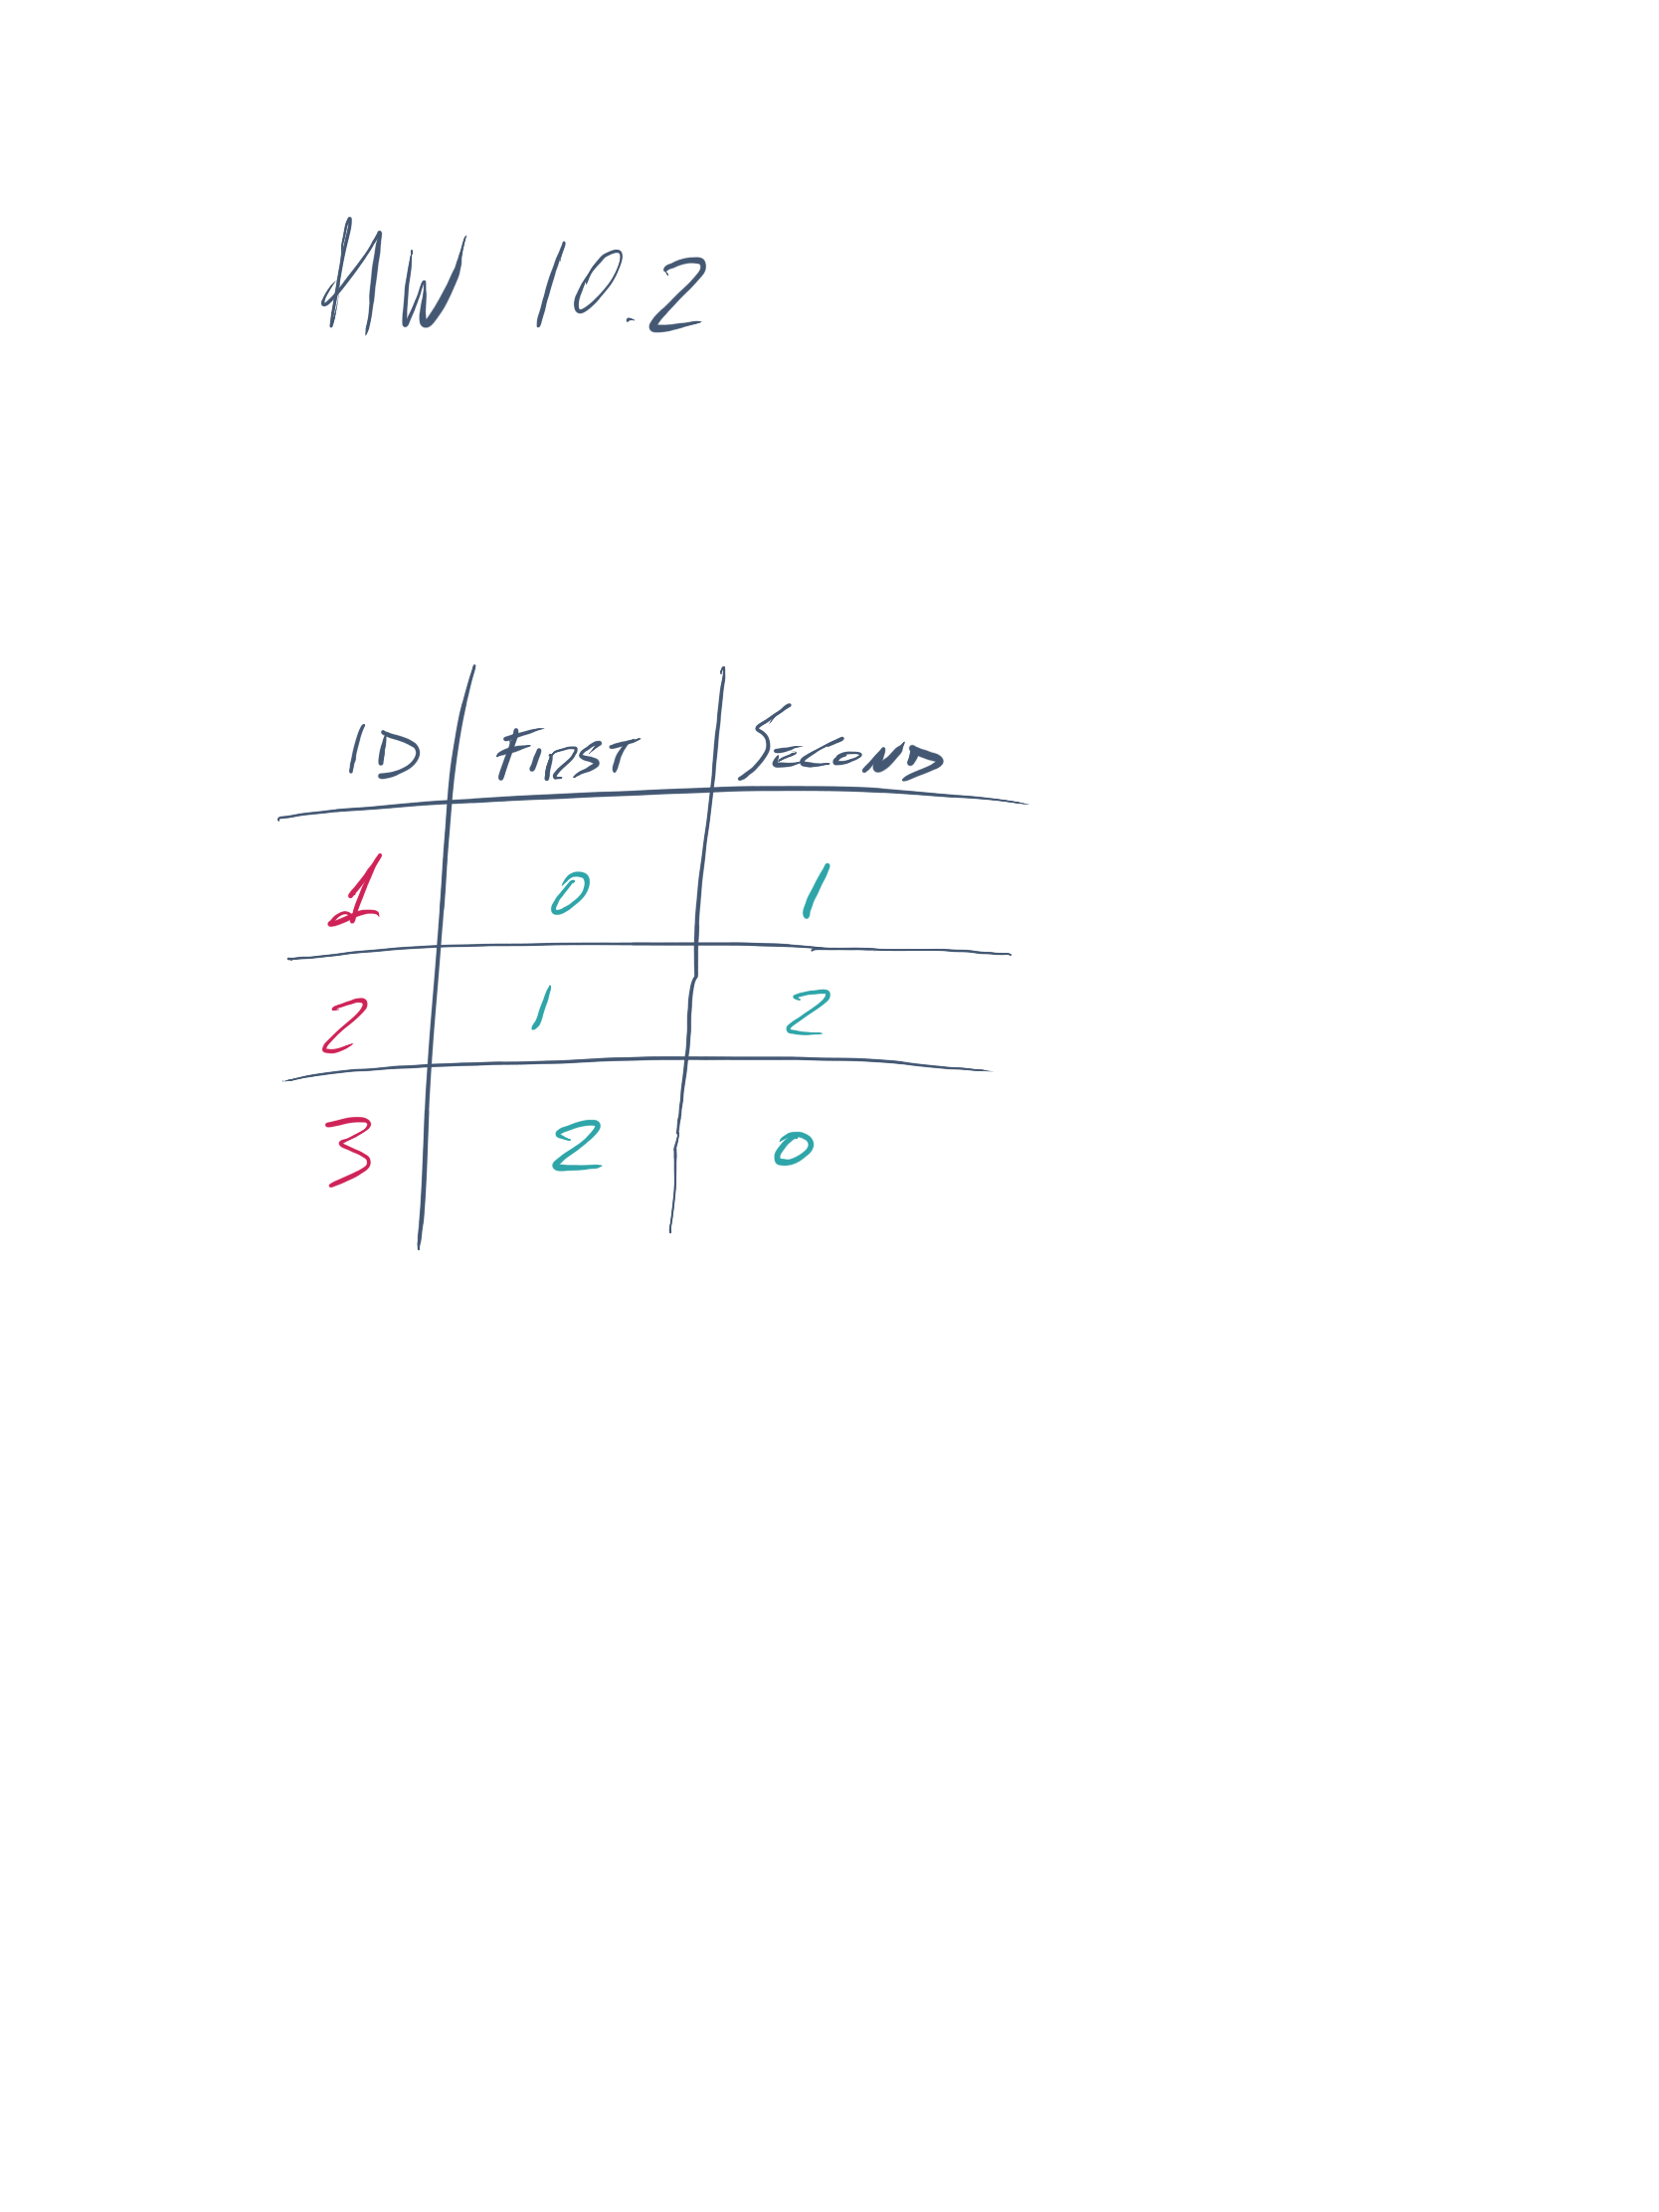 HW 10.2
ID First Second
1 0 1
2 1 2
3 2 0